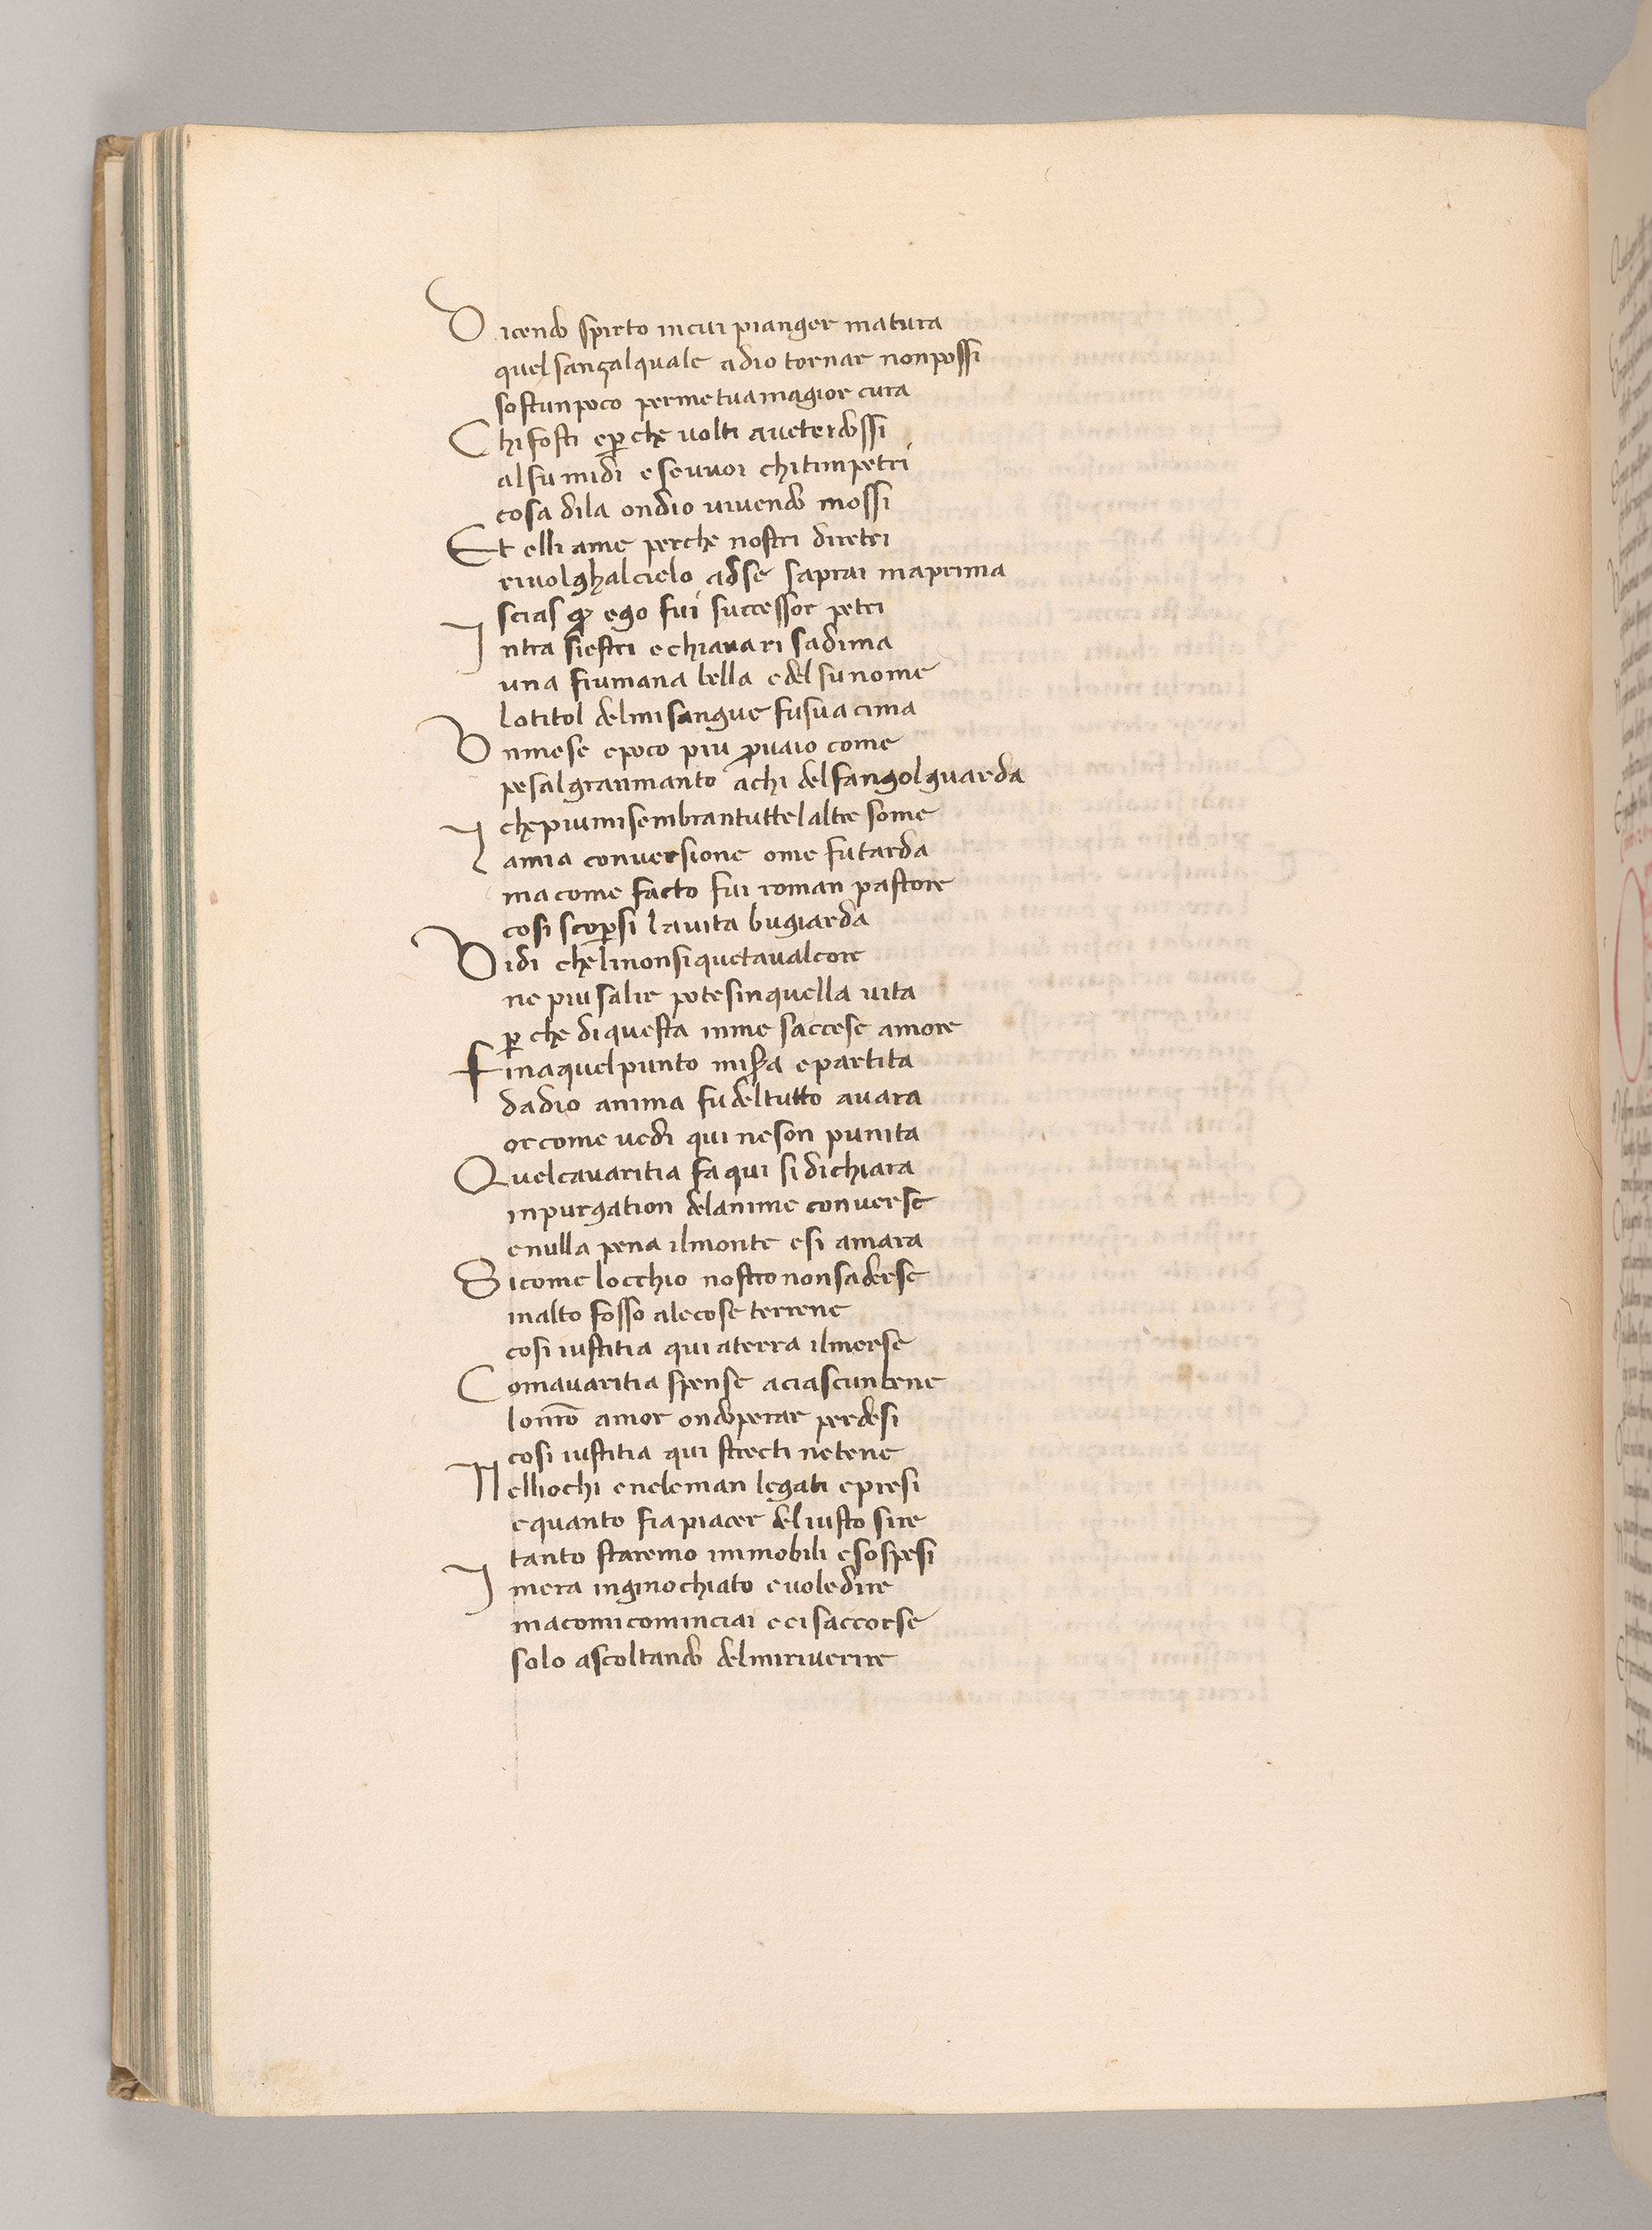 Dicendo spirto incui pianger matura
quel sanzalquale adio tornar nonpossi
sostunpoco permetuamagior cura
Chi fosti eꝑche uolti aueterdossi
alsu midi esevuoi chitimpetri
cosa dila ondio uiuendo mossi
Et elli ame perche nostri diretri
riuolghalcielo adse saprai maprima
scias ꝙ ego fui successor petri
Intra siestri echiauari sadima
una fiumana bella edelsunome
lotitol delmisangue fusuacima
Vnmese epoco piu ꝓuaio come
pesalgranmanto achi delfangolguarda
chepiumisembrantuttelaltre some
Lamia conuersione ome futarda
macome facto fui roman pastore
cosi scoꝑsi lauita bugiarda
Vidi chelinonsiquetaualcore
ne piusalir potesinquella uita
ꝑche diquesta inme saccese amore
Finaquelpunto misa epartita
dadio anima fudeltutto auara
orcome uedi qui neson punita
Quelcauaritia faqui sidichiara
inpurgation delanime conuerse
enulla pena ilmonte esi amara
Sicome locchio nostrononsaderse
inalto fosso alecose terrene
cosi iustitia quiaterra ilmerse
Comauaritia spense aciascunbene
lonr̄o amor ondoperar perdesi
cosi iustitia qui strecti netene
Nelliochi eneleman legati epresi
equanto fiapiacer deliusto sire
tanto staremo immobili esospesi
Imera inginochiato euoledire
macomicominciai eeisaccorse
solo ascoltando delmiriuerire